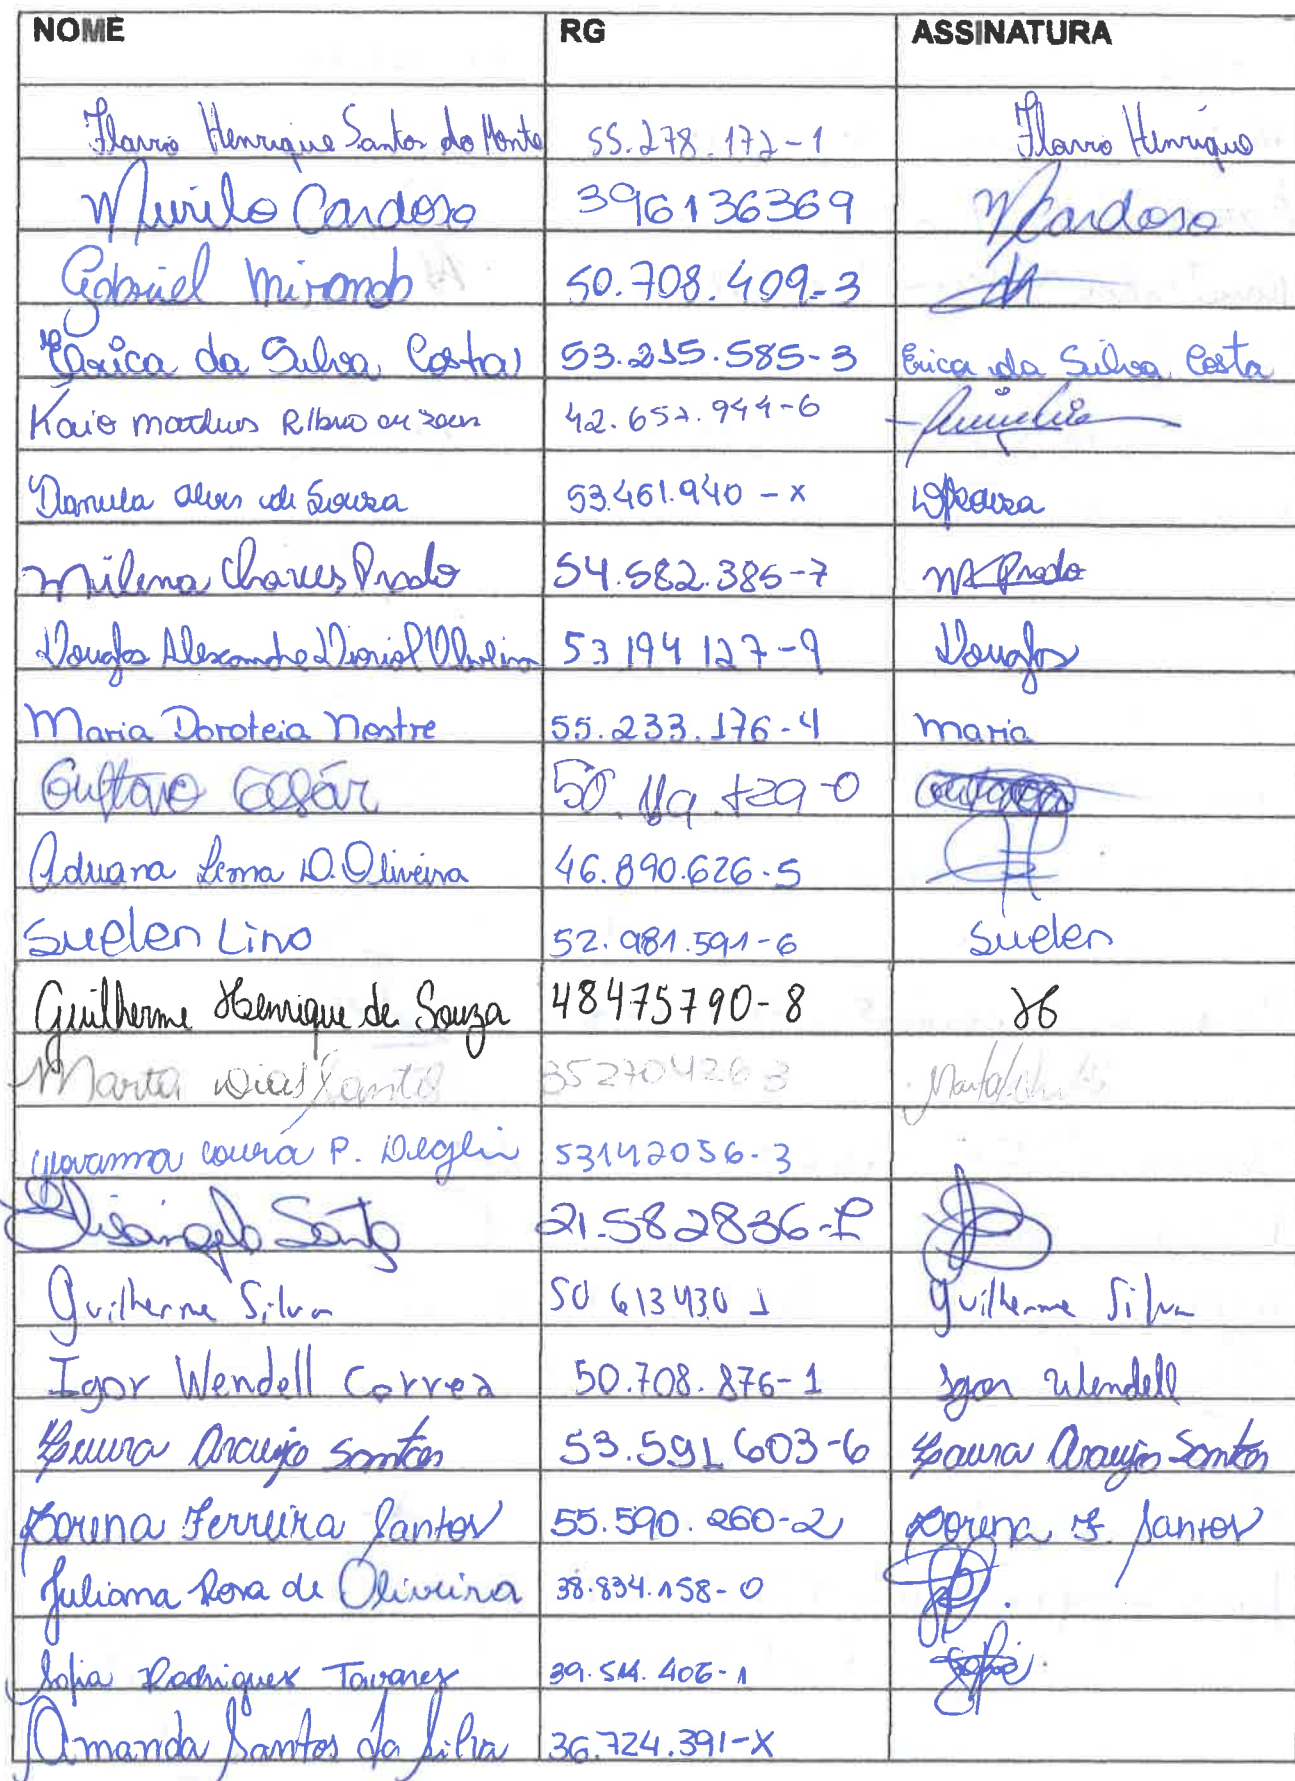 NOME RG ASSINATURA
Flavio Henrique Santos do Monte 55.278.172-1 Flavio Henrique
Murilo Cardoso 396136369 MCardoso
Gabriel Miranda 50.708.409-3
Erica da Silva Costa 53.215.585-3 Erica da Silva Costa
Kaio Matheus 42.657.944-6
Daniela Alves de Souza 53.461.940-x
Milena Chaves Prado 54.582.385-7 Prado
Douglas Alexandre Oliveira 53 194 127-9 Douglas
Maria Doroteia Nostre 55.233.176-4 maria
Gustavo César
Adriana Lima D. Oliveira 46.890.626-5
Suelen Lino 52.981.591-6 Suelen
Guilherme Henrique de Souza 48475790-8
Marta Dias Santos 352704263 Marta
Giovanna P. 53142056-3
Elisangela Santos 21.582836
Guilherme Silva 50 613430 1 Guilherme Silva
Igor Wendell Correa 50.708.876-1 Igor Wendell
Laura Araujo Santos 53.591 603-6 Laura Araujo Santos
Lorena Ferreira Santos 55.590.260-2 Lorena F. Santos
Juliana Rosa de Oliveira 38.834.158-0
Sofia Rodrigues Tavares Sofia
Amanda Santos da Silva 36.724.391-X